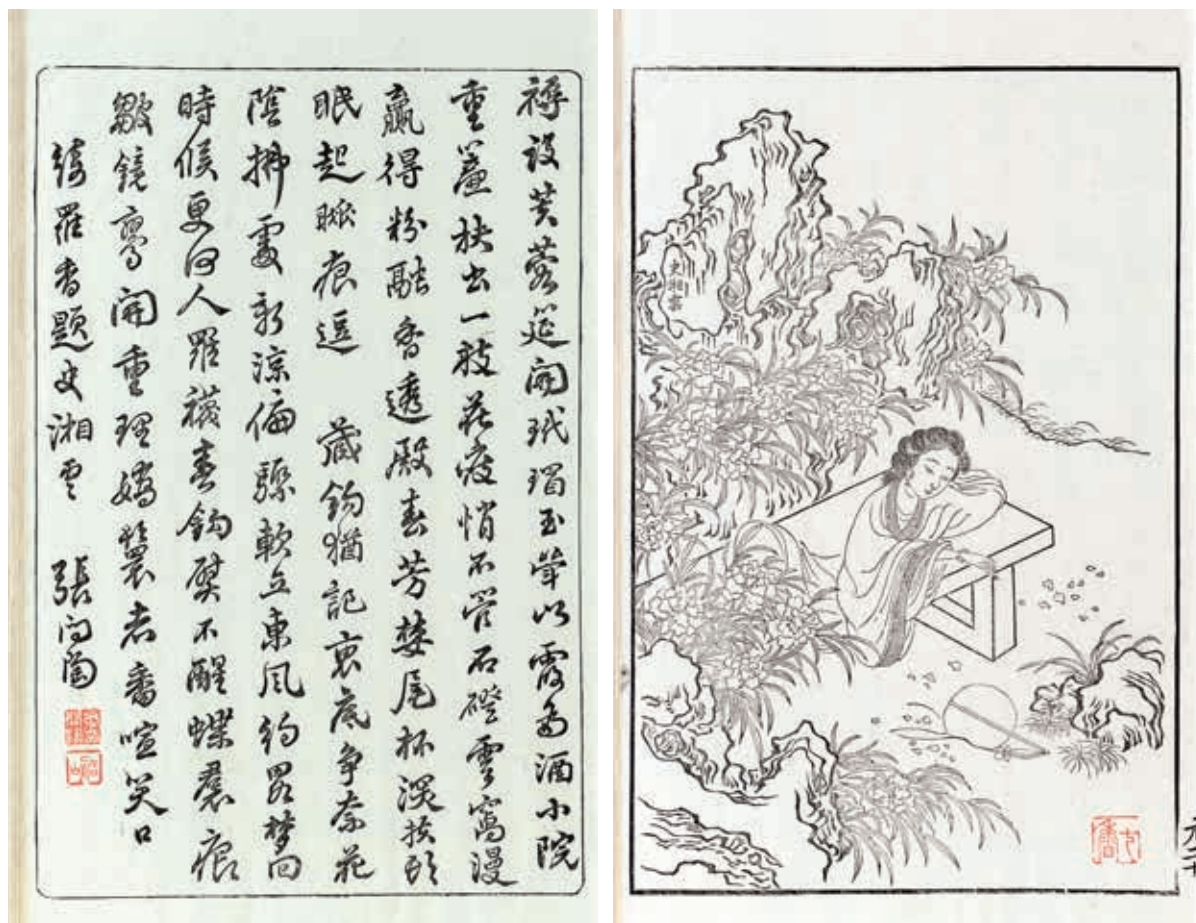 褥設芙蓉筵開玳瑁玉酒小院
重簾扶出一枝花瘦悄不管石磴雲窩漫
贏得粉融香透殿春芳婪尾杯深扶頭
眠起痕逗 藏鉤猶記裏底爭奈花
陰拂處新涼偏驟軟立東風約略夢回
時候更何人羅襪春鉤熨不醒蝶裙痕
皺鏡鸞開重理嬌鬟者番喧笑口
綺羅香題史湘雲 張問陶
史湘雲